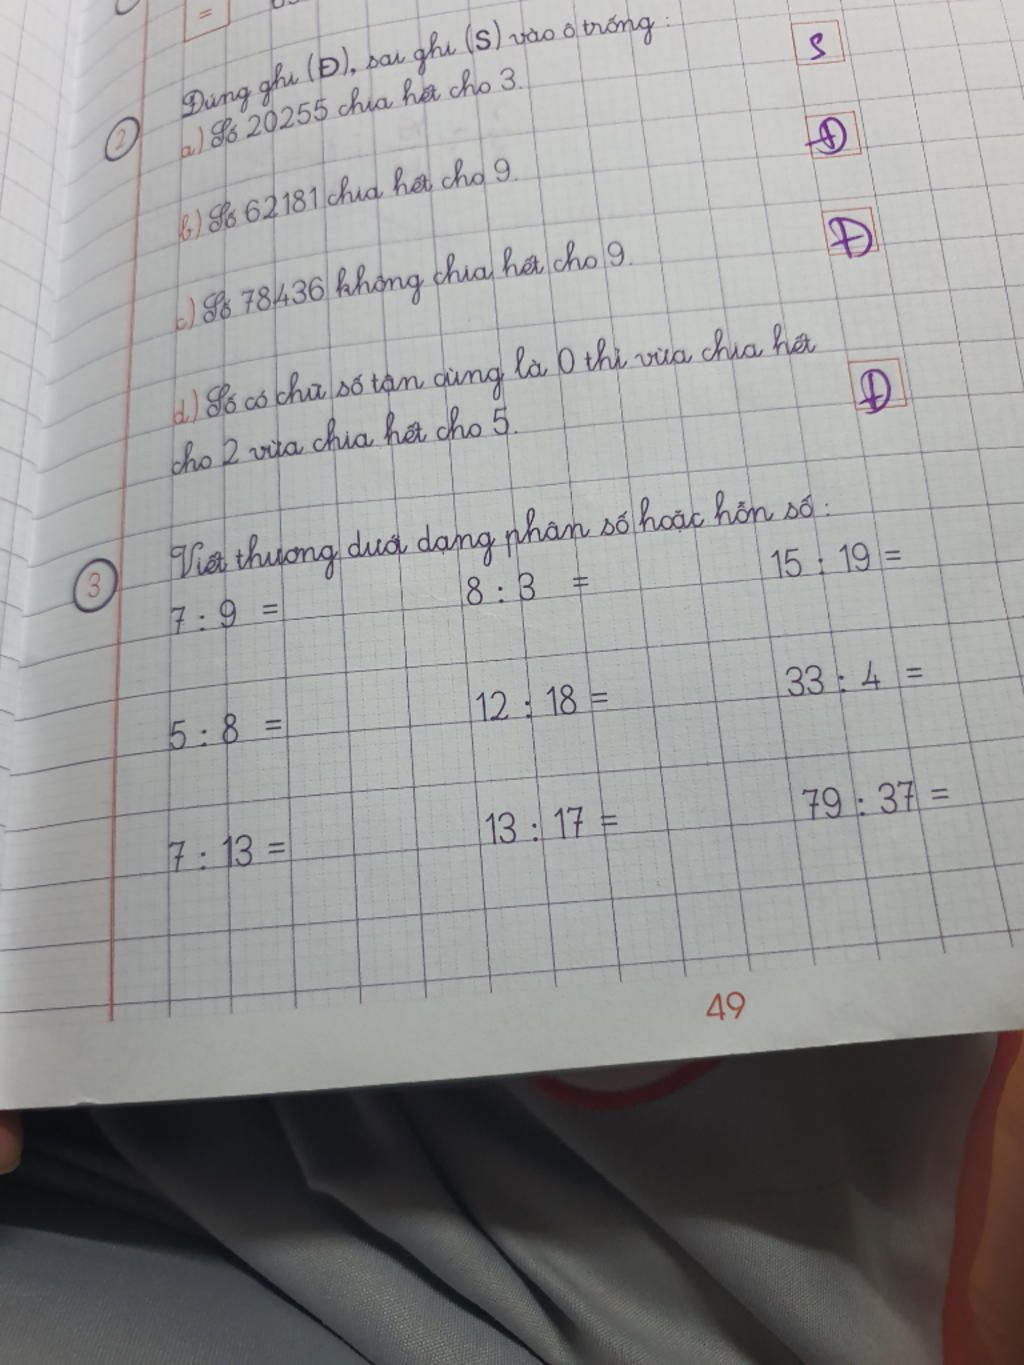 =
2
Đúng ghi (Đ), sai ghi (S) vào ô trống :
a) Số 20255 chia hết cho 3.
S
b) Số 62181 chia hết cho 9.
Đ
c) Số 78436 không chia hết cho 9.
Đ
d) Số có chữ số tận cùng là 0 thì vừa chia hết
cho 2 vừa chia hết cho 5.
Đ
3
Viết thương dưới dạng phân số hoặc hỗn số :
7 : 9 = 8 : 3 = 15 : 19 =
5 : 8 = 12 : 18 = 33 : 4 =
7 : 13 = 13 : 17 = 79 : 37 =
49